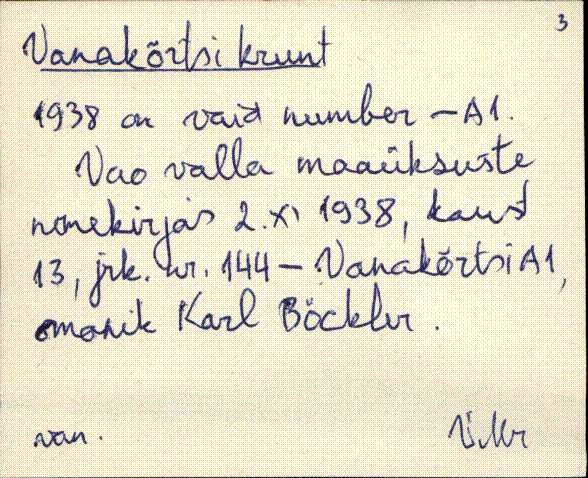 3
Vanakõrtsi krunt
1938 on vaid number – A1.
Vao valla maaüksuste
nimekirjas 2.XI 1938, kaust
13, jrk. nr. 144 – Vanakõrtsi A1,
omanik Karl Böckler.
van.
V.Mr